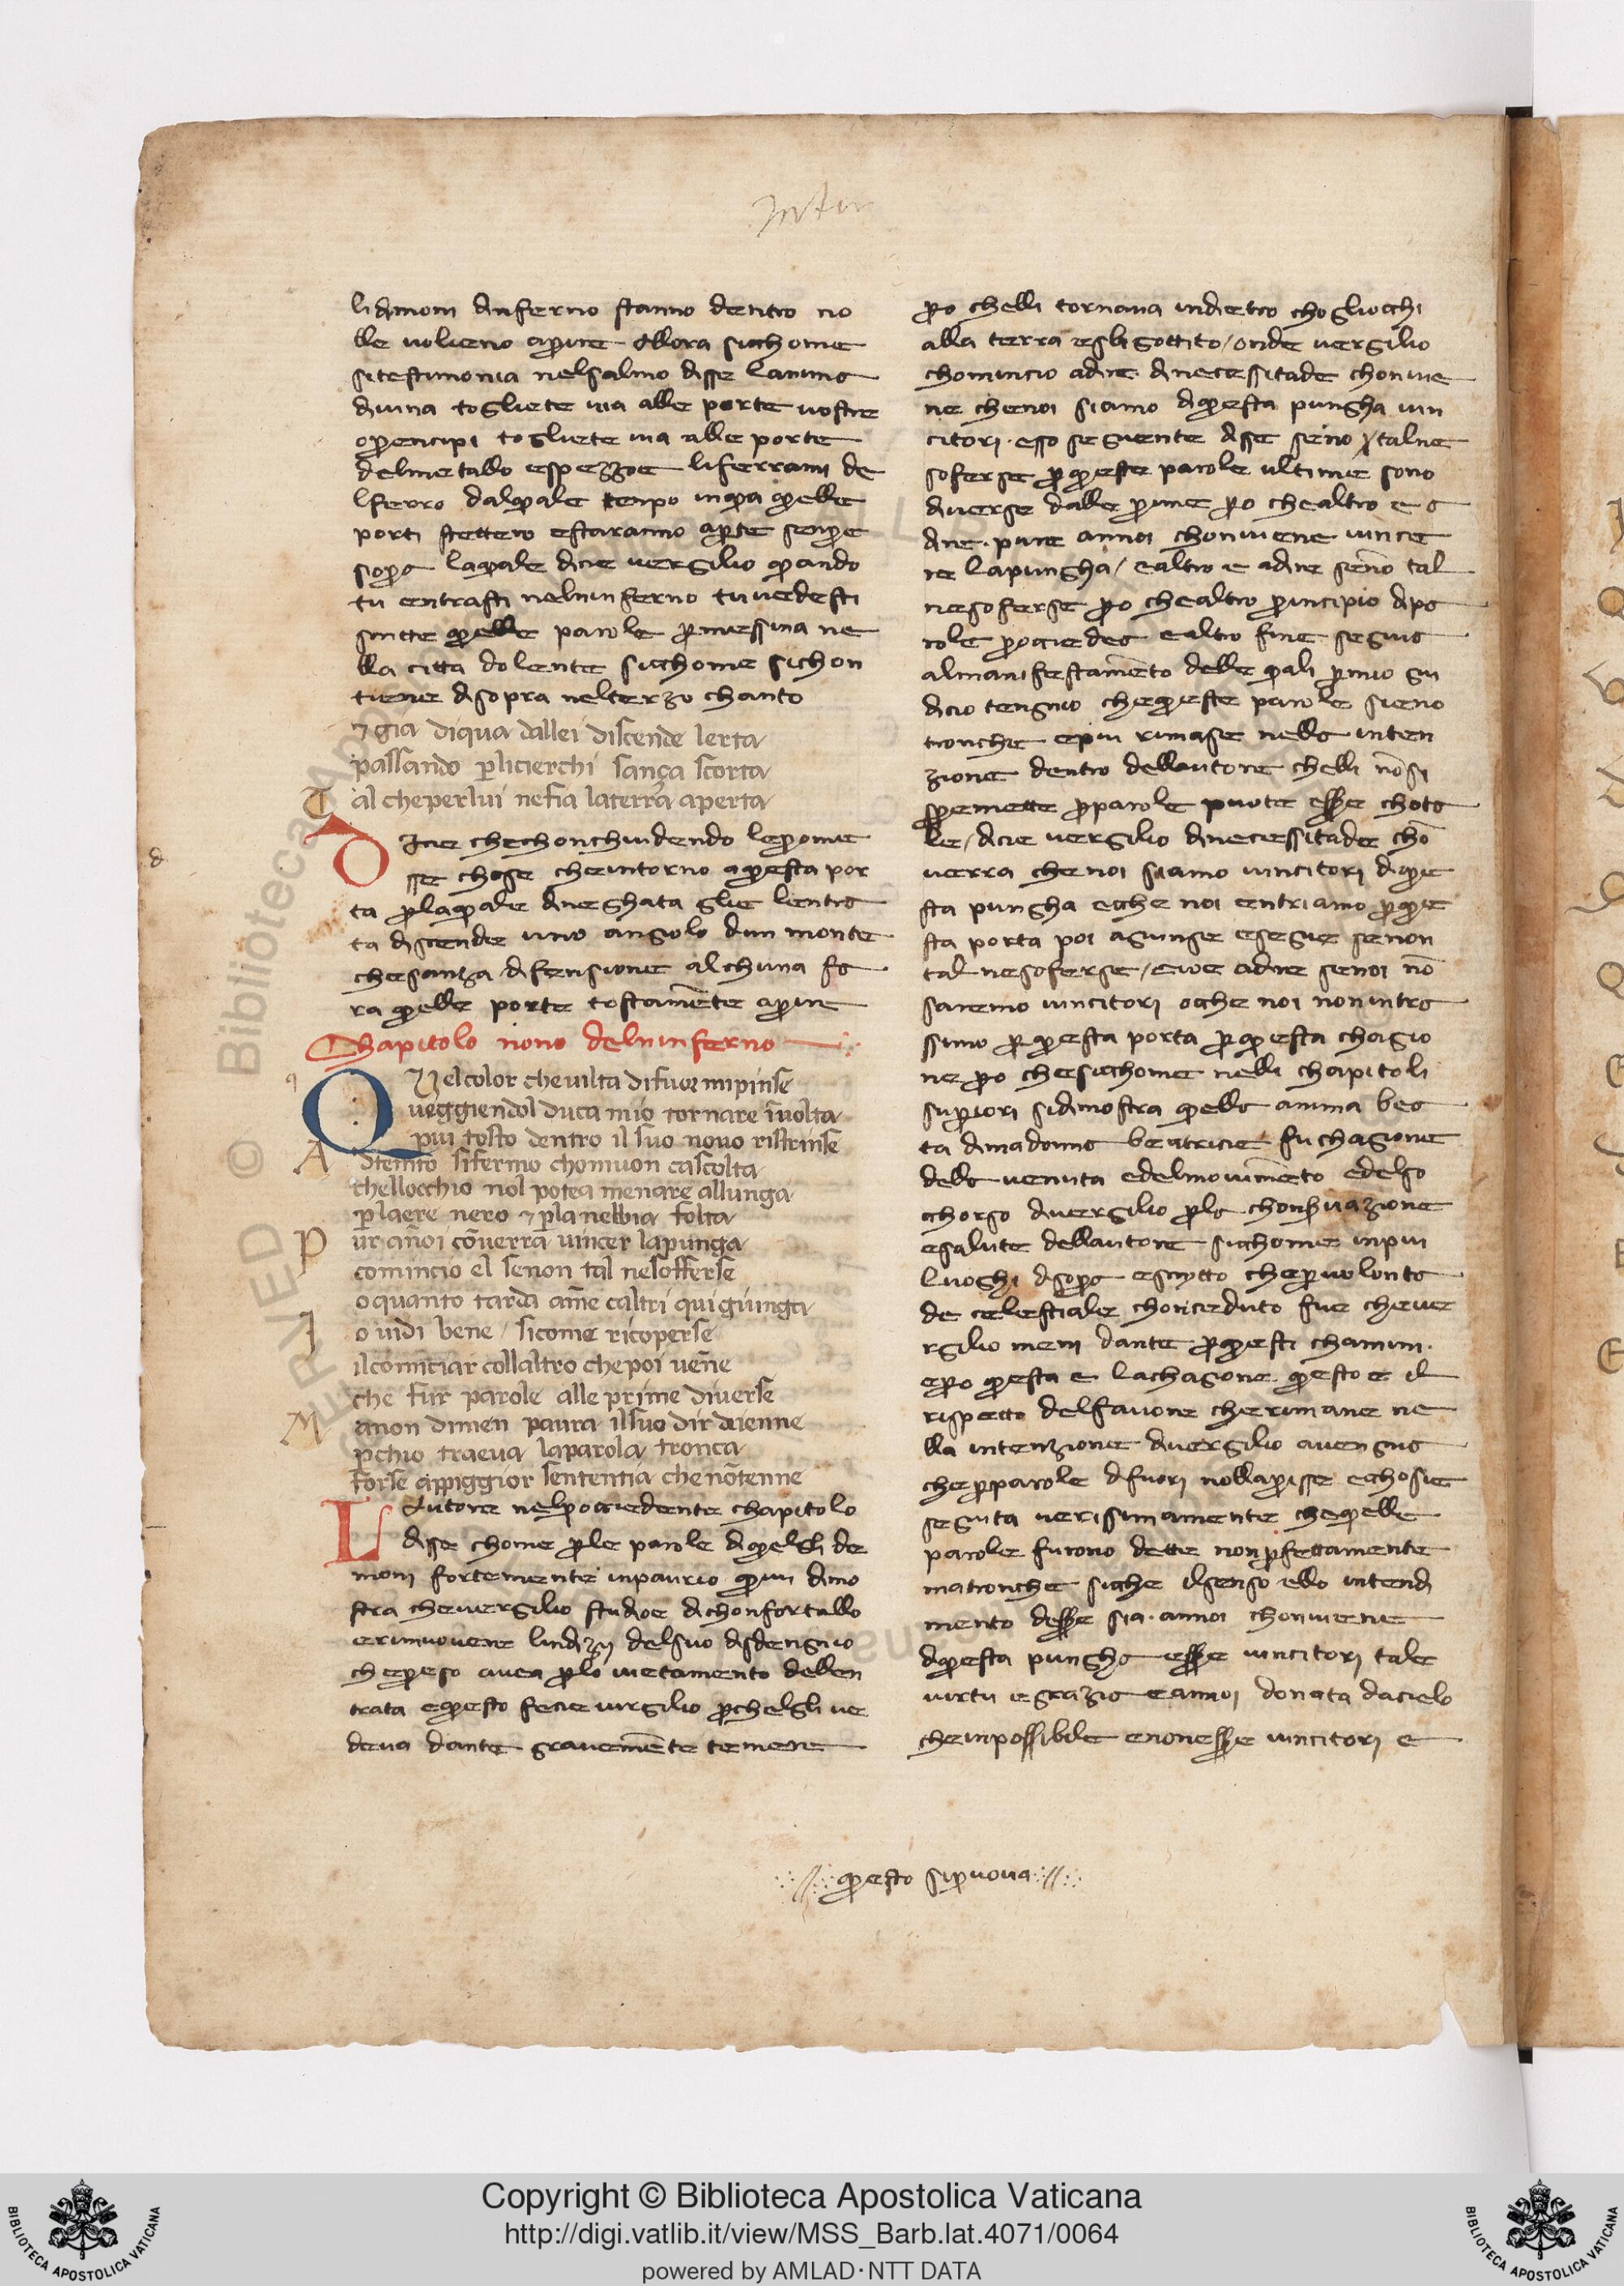 lidimoni dinferno stanno dentro no
lle volieno aprire Allora sicchome
sitestimonia nelsalmo disse lanima
divina togliete via alle porte vostre
oprencipi togliete via alle porte
delmetallo espezzoe liferrami de
lferro dalquale tenpo inqua quelle
porti stettero estaranno aperte senpre
sopra laquale dicie vergilio quando
tu entrasti nelninferno tuvedesti
scritte quelle parole permessina ne
lla citta dolente sicchome sichon
tiene disopra nelterzo chanto
⁊ gia diqua dallei discende lerta
passando perlicierchi sança scorta
Tal cheperlui nefia laterra aperta
Dicie chechonchiudendo lepromie
sse chose cheintorno aquesta por
ta perlaquale dineghata glie lentra
ta discende uno angiolo dun monte
chesanza difensione alchuna fa
ra quelle porte tostamēte aprire
Chapitolo nono delninferno
Quelcolor chevilta difuor mipinse
veggiendol duca mio tornare ī volta
piu tosto dentro il suo novo ristrinse
Attento sifermo chomuon cascolta
chellocchio nol potea menare allunga
perlaere nero ⁊ perla nebbia folta
Pur añoi cōverra vincer lapunga
comincio el senon tal nesofferse
oquanto tarda ame caltri qui giunga
Io vidi bene / sicome ricoperse
ilcominciar collaltro chepoi veñe
che fur parole alle prime diverse
Manon dimen paura ilsuo dir dienne
perchio traeva laparola tronca
forse appiggior sententia che nōtenne
Lautore nelprociedente chapitolo
disse chome perle parole diquelgli de
moni fortemente inpaurio qui dimo
stra chevergilio studioe dichonfortallo
erimuovere lindizij delsuo disdengnio
chepreso avea perlo vietamento dellen
trata equesto fecie virgilio perchelgli ve
deva dante gravemēte temere
pero chelli tornava indietro chogliocchi
alla terra esbigottito / onde vergilio
chomincio adire dinecessitade chonvie
ne chenoi siamo diquesta pungha vin
citori · esso seguente disse seno / talne
soferse per queste parole ultime sono
diverse dalle prime pero chealtro e a
dire · pure annoi chonviene vincie
re lapungha / ealtro e adire senō tal
nesoferse pero chealtro principio dipa
role prociedea ealtro fine seguia
almanifestamēto delle quali primo su
dicio tengnio chequeste parole sieno
tronche epiu rimase nella inten
zione dentro dellautore chelli nōsi
spremette perparole puote essere chota
le / dicie vergilio dineciessitade chō
verra chenoi siamo vincitori dique
sta pungha ecche noi entriamo perque
sta porta poi agiunse esegue senon
tal nesoferse / cioe adire senoi nō
saremo vincitori ocche noi nonintra
ssimo perquesta porta perquesta chagio
ne pero chesicchome nelli chapitoli
superiori sidimostra quella anima bea
ta dimadonna beatricie fu chagione
della venuta edelmovimēto edelso
cchorso divergilio perla chonservazione
esalute dellautore sicchome inpiu
luoghi disopra escritto cheper volonta
de celestiale chonceduto fue cheve
rgilio meni dante perquesti chamini ·
epero questa e lachagone · questo e il
rispetto delsavione cherimane ne
lla intenzione divergilio avengnia
cheperparole difuori nollaprisse ecchosie
seguita verissimamente chequelle
parole furono dette nonperfettamente
matronche sicche ilsenso ello intendi
mento desse sia · annoi chonviene
diquesta pungha essere vincitori tale
virtu egrazia eannoi donata dacielo
cheinpossibile enonessere vincitori e
questo sipruova
Copyright © Biblioteca Apostolica Vaticana
http://digi.vatlib.it/view/MSS_Barb.lat.4071/0064
powered by AMLAD·NTT DATA
BIBLIOTECA APOSTOLICA VATICANA
BIBLIOTECA APOSTOLICA VATICANA